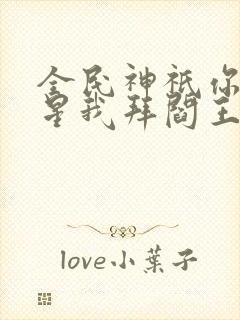 全民神祇你
星我拜閻王
love小葉子